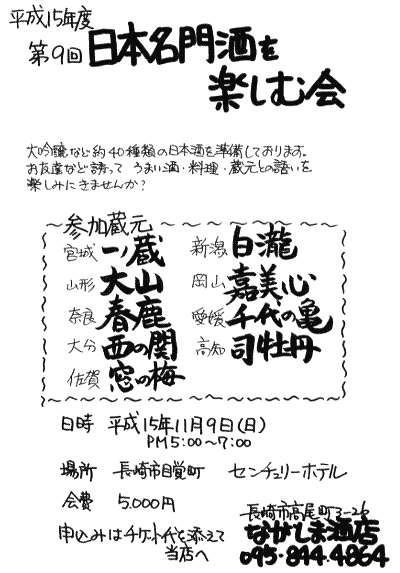 平成15年度
第9回 日本名門酒を
楽しむ会
大吟醸など約40種類の日本酒を準備しております。
お友達など誘って うまい酒・料理・蔵元との語いを
楽しみにきませんか?
参加蔵元
宮城 一ノ蔵 新潟 白瀧
山形 大山 岡山 嘉美心
奈良 春鹿 愛媛 千代の亀
大分 西の関 高知 司牡丹
佐賀 窓の梅
日時 平成15年11月9日(日)
PM5:00〜7:00
場所 長崎市目覚町 センチュリーホテル
会費 5.000円
申込みはチケット代を添えて
当店へ
長崎市高尾町3-26
ながしま酒店
095-844-4864